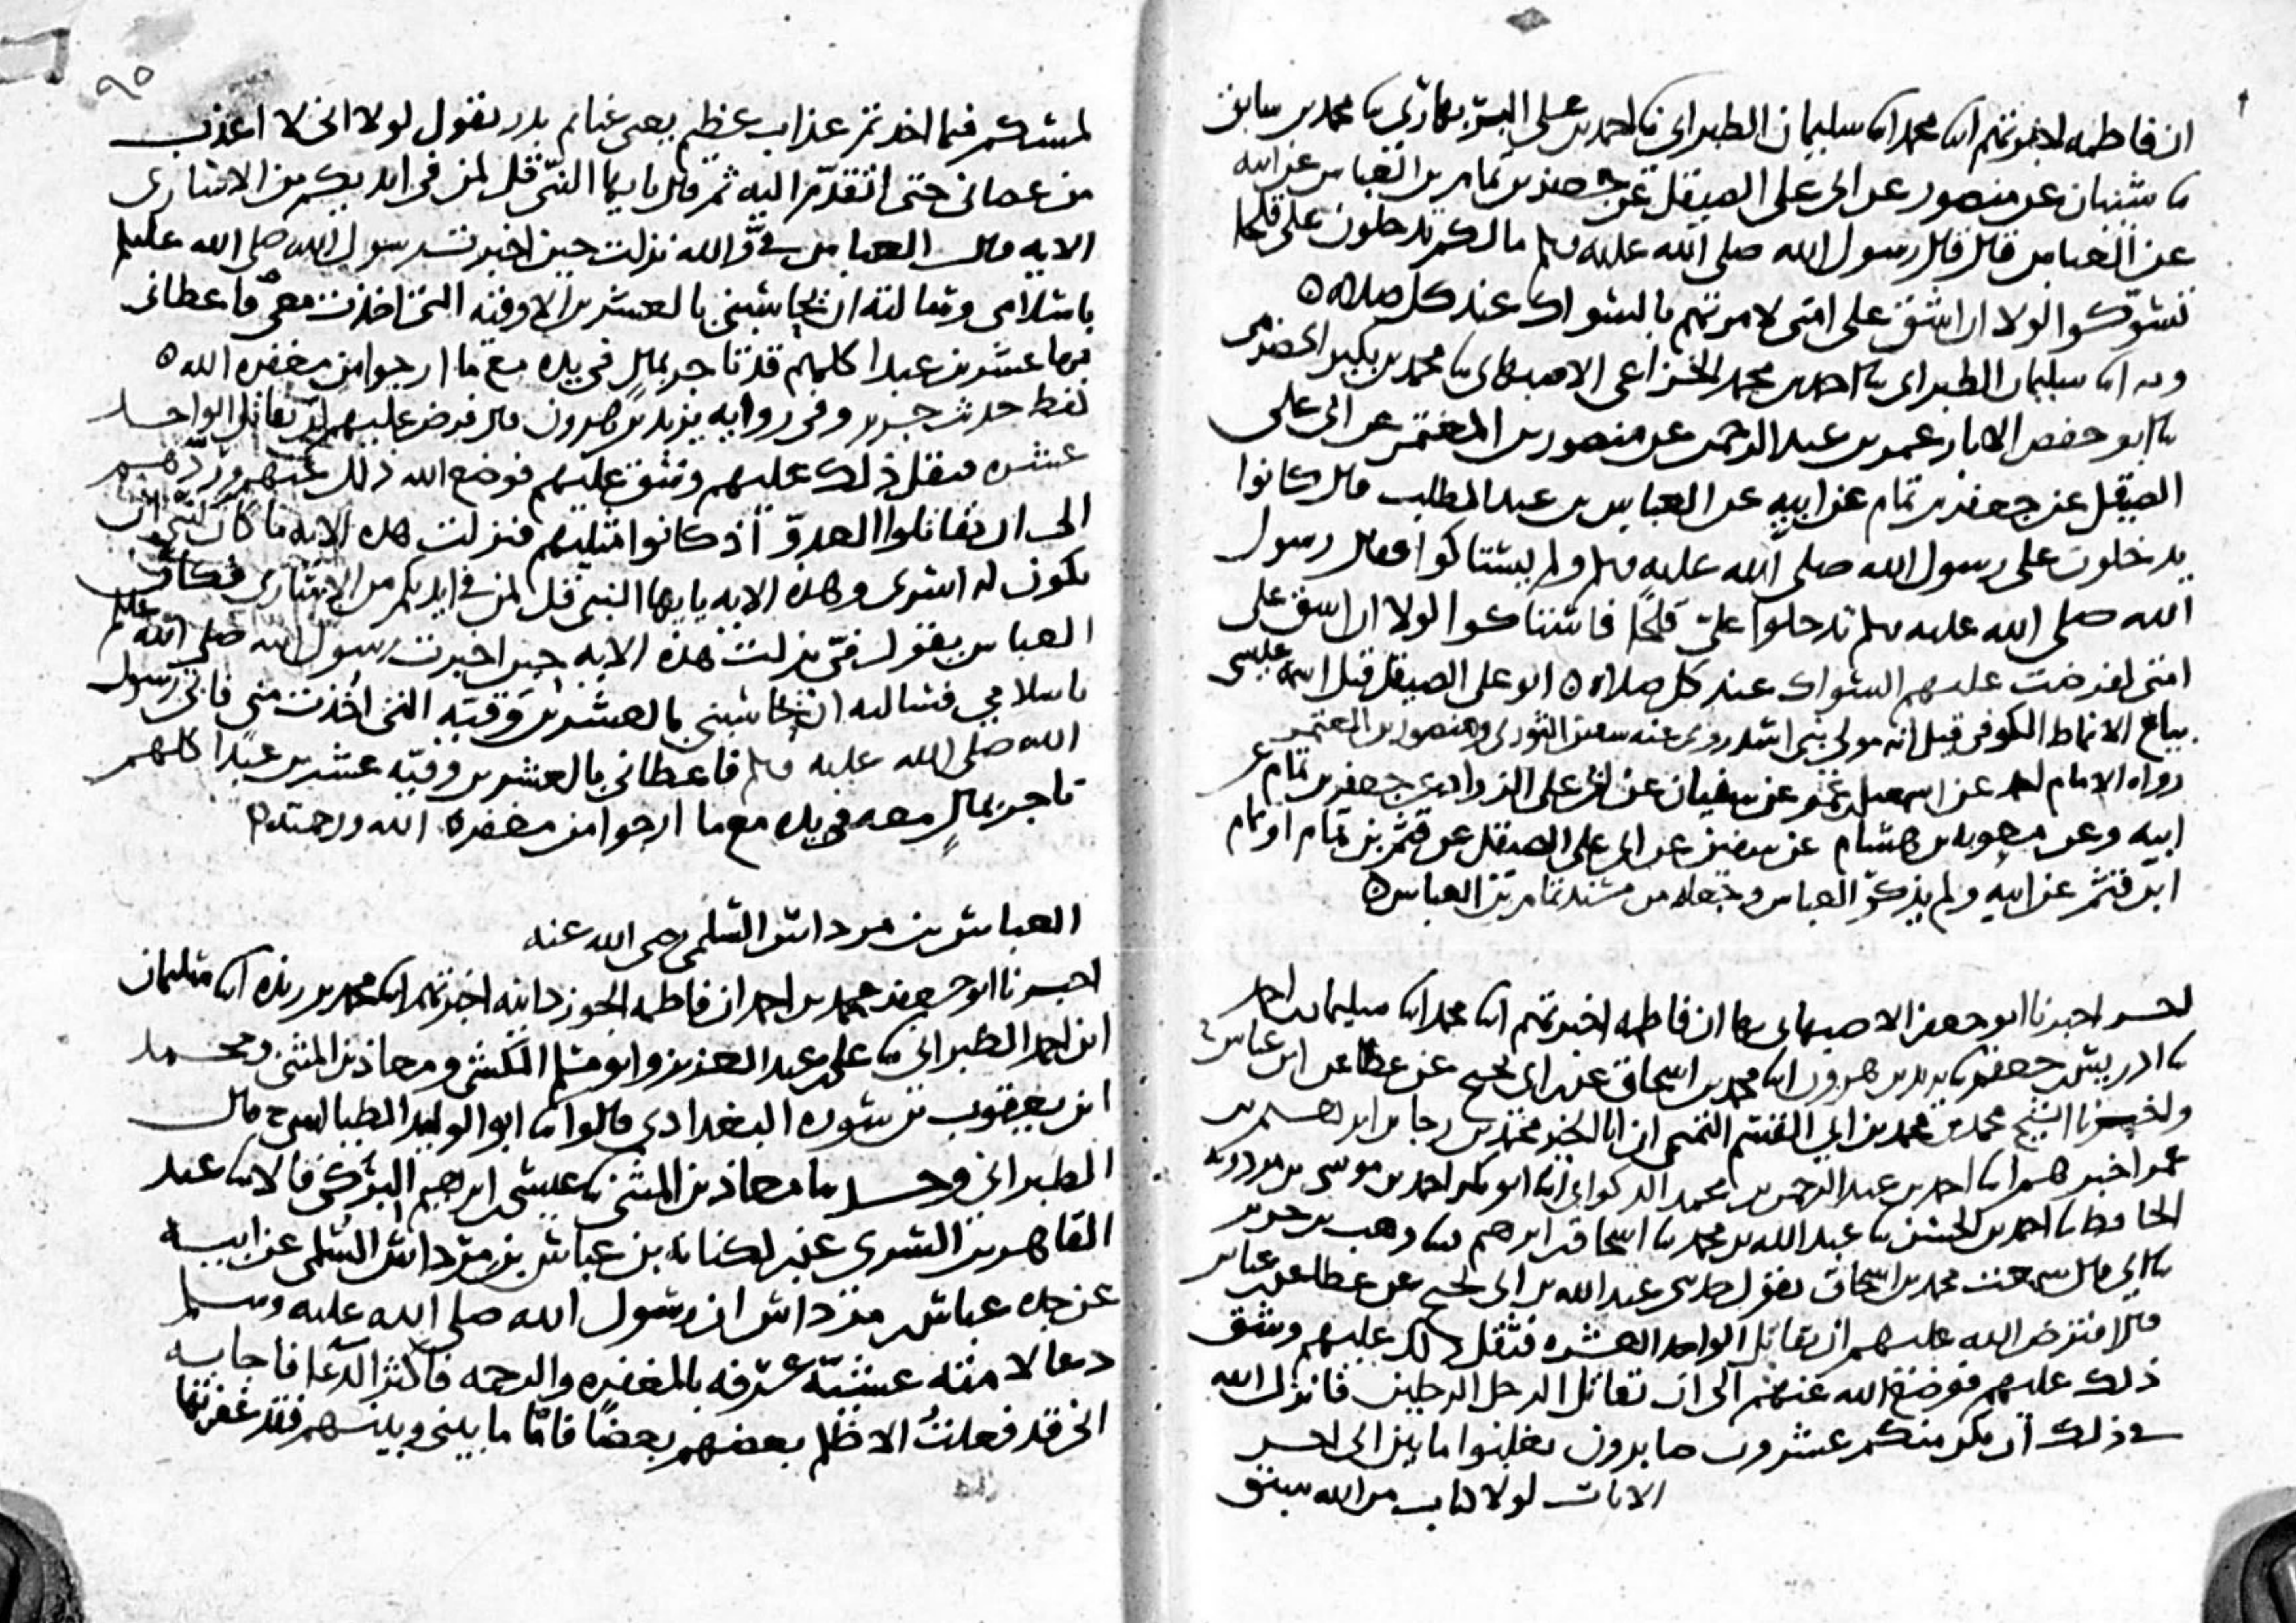 ان فاطمه اخبرتهم ابنا محمد ابنا سليمان الطبراني نا احمد بن علي البربهاري نا محمد بن سابق
نا شيبان عن منصور عن ابي علي الصيقل عن جعفر بن تمام بن العباس عن ابيه
عن العباس قال قال رسول الله صلى الله عليه وسلم مالكم تدخلون على قلحا
تسوكوا لولا ان اشق على امتي لامرتهم بالسواك عند كل صلاه ٥
وبه ابنا سليمان الطبراني نا احمد بن محمد الخزاعي الاصبهاني نا محمد بن بكير الحضرمي
نا ابو حفص الابار عمر بن عبد الرحمن عن منصور بن المعتمر عن ابي علي
الصيقل عن جعفر بن تمام عن ابيه عن العباس بن عبد المطلب قال كانوا
يدخلون على رسول الله صلى الله عليه وسلم ولم يستاكوا فقال رسول
الله صلى الله عليه وسلم تدخلوا علي قلحا فاستاكوا لولا ان اشق على
امتي لفرضت عليهم السواك عند كل صلاه ٥ ابو علي الصيقل قيل اسمه عيسى
بياع الانماط الكوفي قيل انه مولى بني اسد روى عنه سفين الثوري ومنصور بن المعتمر
رواه الامام احمد عن اسمعيل بن عمر عن سفيان عن ابي علي الزراد عن جعفر بن تمام عن
ابيه وعن معويه بن هشام عن سفين عن ابي علي الصيقل عن قثم بن تمام او تمام
ابن قثم عن ابيه ولم يذكر العباس وجعله من مسند تمام بن العباس ٥
اخبرنا ابو جعفر الاصبهاني بها ان فاطمه اخبرتهم ابنا محمد ابنا سليمان بن احمد
نا ادريس بن جعفر نا يزيد بن هرون ابنا محمد بن اسحاق عن ابن ابي نجيح عن عطا عن ابن عباس
واخبرنا الشيخ محمد بن محمد بن ابي القسم التميمي ان ابا الخير محمد بن رجا بن ابرهيم بن
عمر اخبرهم ابنا احمد بن عبد الرحمن بن محمد الذكواني ابنا ابو بكر احمد بن موسى بن مردويه
الحافظ نا احمد بن الحسن نا عبد الله بن محمد نا اسحاق بن ابرهيم نا وهب بن جرير
نا ابي قال سمعت محمد بن اسحاق يقول حدثني عبد الله بن ابي نجيح عن عطا عن ابن عباس
قال افترض الله عليهم ان يقاتل الواحد العشره فثقل ذلك عليهم وشق
ذلك عليهم فوضع الله عنهم الى ان يقاتل الرجل الرجلين فانزل الله
في ذلك ان يكن منكم عشرون صابرون يغلبوا مايتين الى اخر
الايات لولا كتاب من الله سبق
٩٥
لمسكم فيما اخذتم عذاب عظيم يعني غنايم بدر يقول لولا اني لا اعذب
من عصاني حتى اتقدم اليه ثم قال يا ايها النبي قل لمن في ايديكم من الاسارى
الايه قال العباس في والله نزلت حين اخبرت رسول الله صلى الله عليه وسلم
باسلامي وسالته ان يحاسبني بالعشرين الاوقيه التي اخذت معي فاعطاني
بها عشرين عبدا كلهم قد تاجر بمال في يده مع ما ارجوا من مغفره الله ٥
لفظ حديث جرير وفي روايه يزيد بن هرون قال فرض عليهم ان يقاتل الواحد
عشره فثقل ذلك عليهم وشق عليهم فوضع الله ذلك عنهم وردهم
الى ان يقاتلوا العدو اذ كانوا مثليهم فنزلت هذه الايه ما كان لنبي ان
يكون له اسرى وهذه الايه يا يها النبي قل لمن في ايديكم من الاسارى فكان
العباس يقول في نزلت هذه الايه حين اخبرت رسول الله صلى الله عليه وسلم
باسلامي فسالته ان يحاسبني بالعشرين وقيه التي اخذت مني فابى رسول
الله صلى الله عليه وسلم فاعطاني بالعشرين وقيه عشرين عبدا كلهم
تاجر بمال معه في يده مع ما ارجوا من مغفره الله ورحمته ٥
العباس بن مرداس السلمي رضي الله عنه
اخبرنا ابو جعفر محمد بن احمد ان فاطمه الجوزدانيه اخبرتهم ابنا محمد بن ريذه ابنا سليمان
ابن احمد الطبراني نا علي بن عبد العزيز وابو مسلم الكشي ومعاذ بن المثنى ومحمد
ابن يعقوب بن سوره البغدادي قالوا نا ابو الوليد الطيالسي ح قال
الطبراني وحدثنا معاذ بن المثنى نا عيسى بن ابرهيم البركي قالا نا عبد
القاهر بن السري عن ابن لكنانه بن عباس بن مرداس السلمي عن ابيه
عن جده عباس بن مرداس ان رسول الله صلى الله عليه وسلم
دعا لامته عشية عرفه بالمغفره والرحمه فاكثر الدعا فاجابه
اني قد فعلت الا ظلم بعضهم بعضا فاما ما بيني وبينهم فقد غفرتها